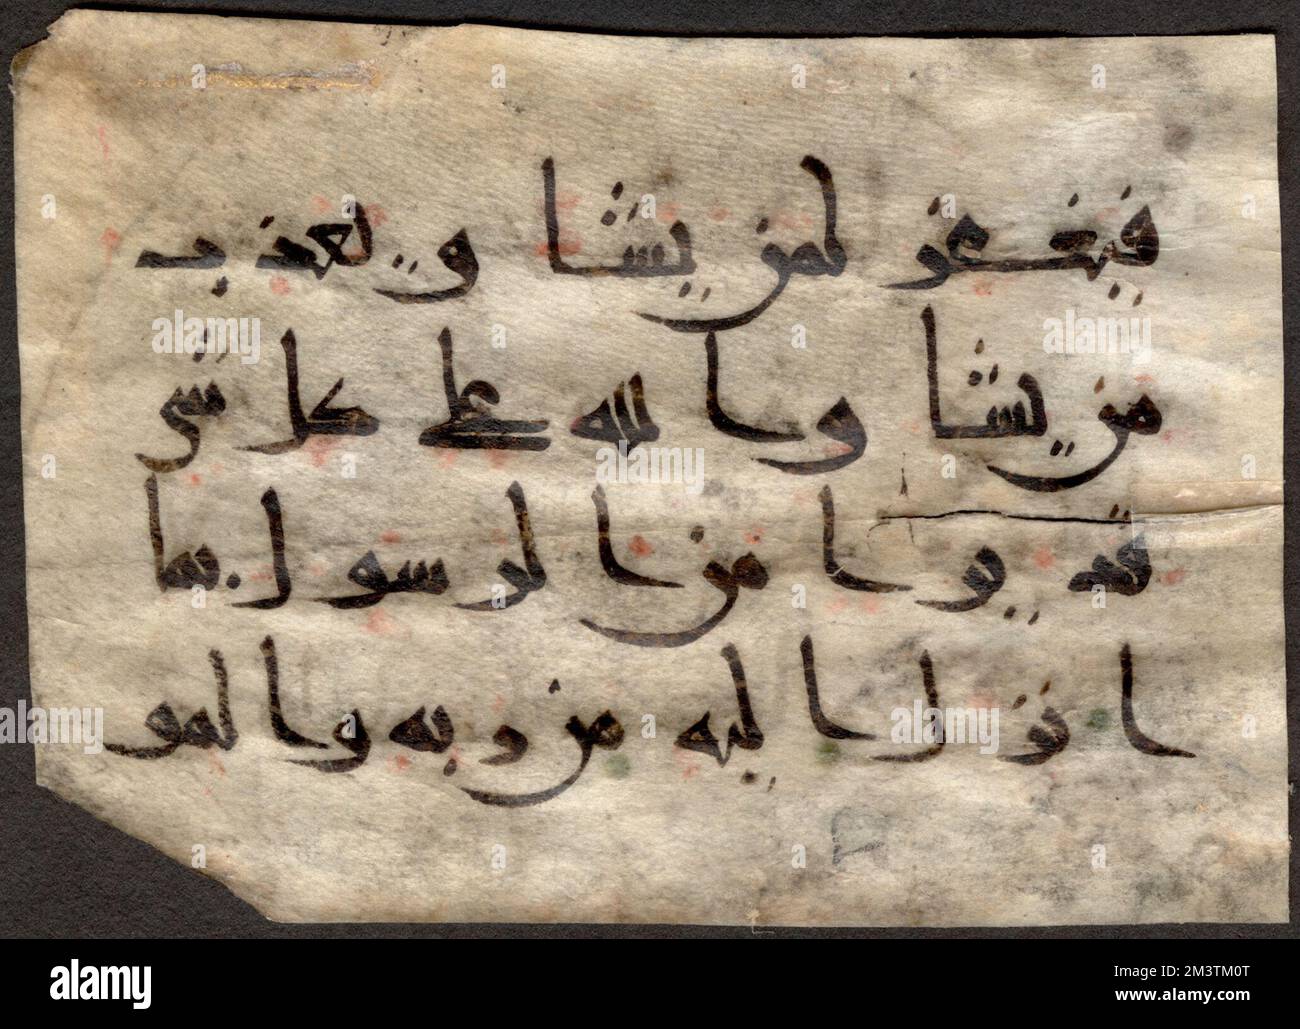 فيغفر لمن يشا و يعذب
من يشا والله على كل شى
قدير امن الرسول بما
انزل اليه من ربه والمو
alamy
alamy
alamy
alamy
Image ID: 2M3TM0T
www.alamy.com